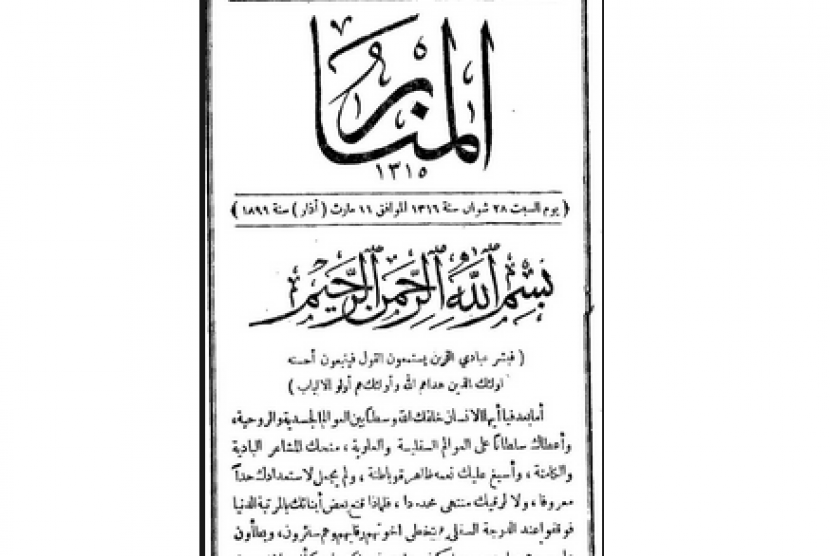 المنار
١٣١٥
( يوم السبت ٢٨ شوال سنة ١٣١٦ الموافق ١١ مارث ( آذار ) سنة ١٨٩٩ )
بسم الله الرحمن الرحيم
( فبشر عبادي الذين يستمعون القول فيتبعون أحسنه
اولئك الذين هداهم الله وأولئك هم أولو الالباب )
أما بعد فيا أيها الانسان خلقك الله وسطا بين العوالم الجسدية والروحية،
وأعطاك سلطانا على العوالم السفلية والعلوية ، منحك المشاعر البادية
والكامنة ، وأسبغ عليك نعمه ظاهرة وباطنة ، ولم يجعل لاستعدادك حداً
معروفا ، ولا لرقيك منتهى محدودا ، فلماذا قنع بعض أبنائك بالمرتبة الدنيا
فوقفوا عند الدرجة السفلى